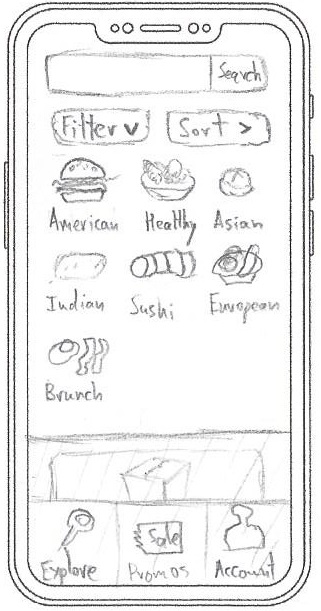 Search
Filter v Sort >
American Healthy Asian
Indian Sushi European
Brunch
Sale
Explore Promos Account